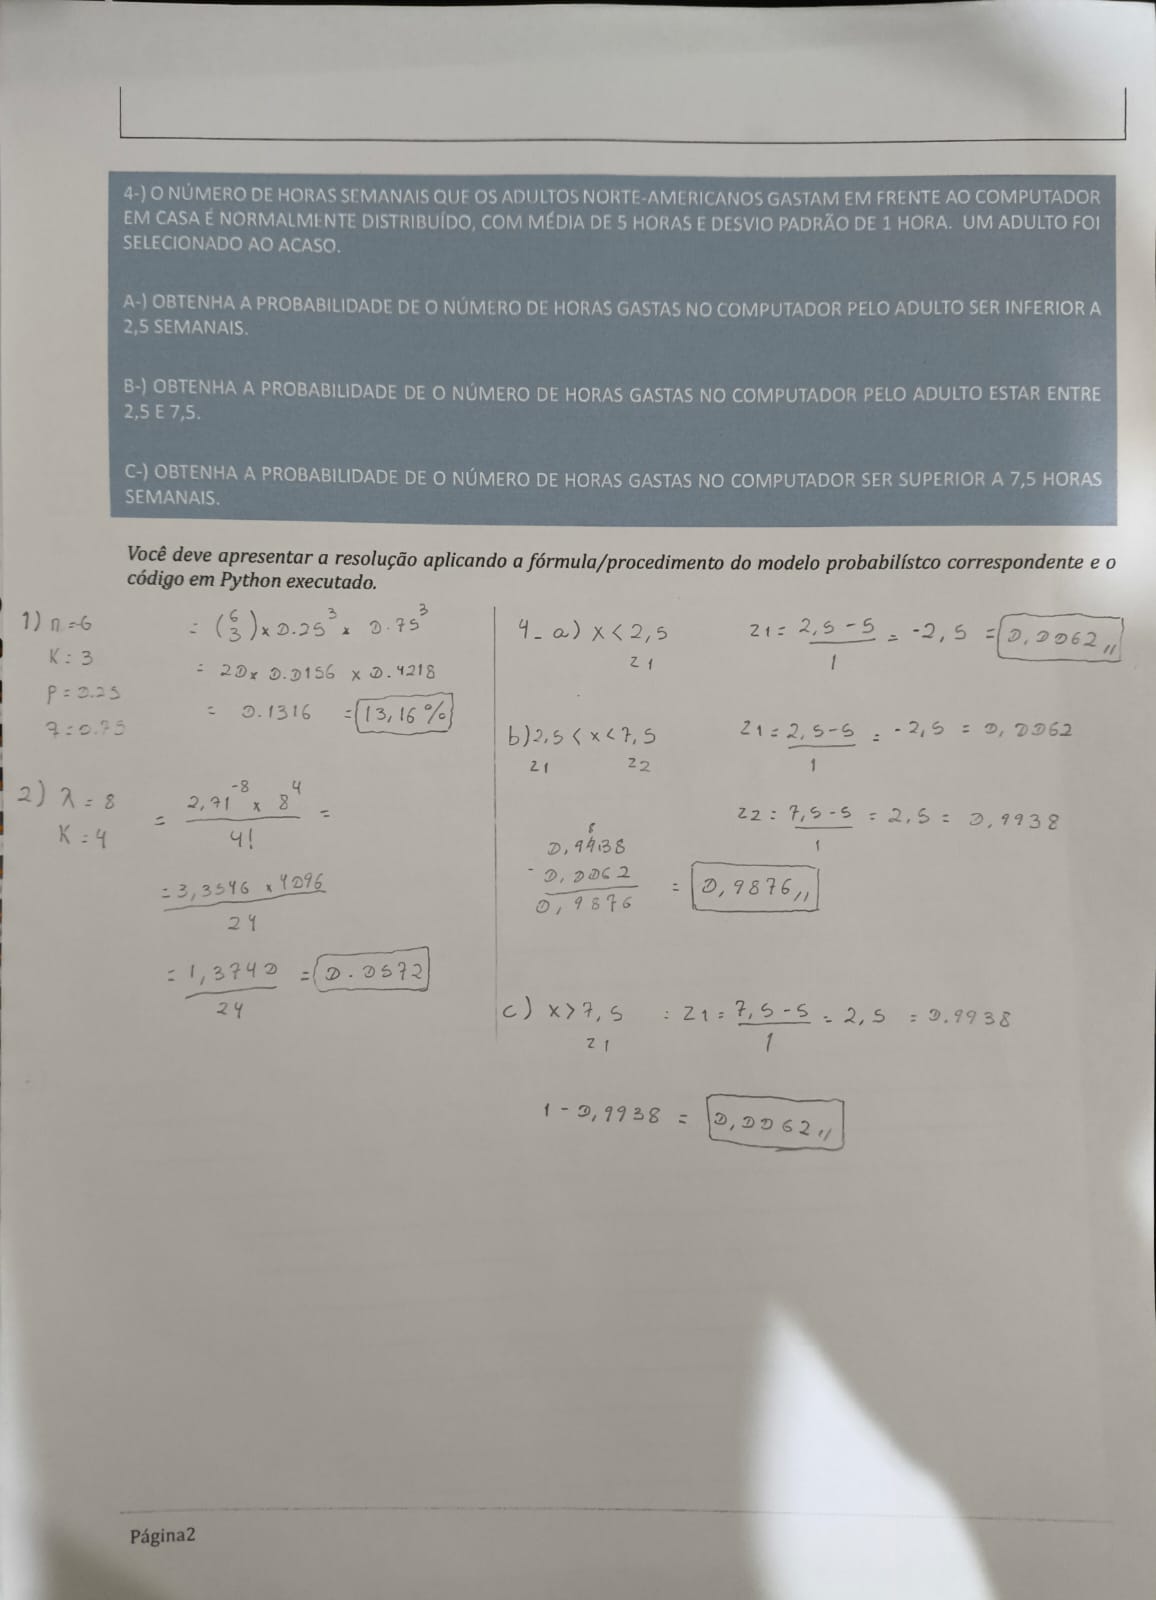 4-) O NÚMERO DE HORAS SEMANAIS QUE OS ADULTOS NORTE-AMERICANOS GASTAM EM FRENTE AO COMPUTADOR
EM CASA É NORMALMENTE DISTRIBUÍDO, COM MÉDIA DE 5 HORAS E DESVIO PADRÃO DE 1 HORA. UM ADULTO FOI
SELECIONADO AO ACASO.
A-) OBTENHA A PROBABILIDADE DE O NÚMERO DE HORAS GASTAS NO COMPUTADOR PELO ADULTO SER INFERIOR A
2,5 SEMANAIS.
B-) OBTENHA A PROBABILIDADE DE O NÚMERO DE HORAS GASTAS NO COMPUTADOR PELO ADULTO ESTAR ENTRE
2,5 E 7,5.
C-) OBTENHA A PROBABILIDADE DE O NÚMERO DE HORAS GASTAS NO COMPUTADOR SER SUPERIOR A 7,5 HORAS
SEMANAIS.
Você deve apresentar a resolução aplicando a fórmula/procedimento do modelo probabilístco correspondente e o
código em Python executado.
1) n=6
K: 3
p = 0.25
q = 0.75
= (6 3) x 0.25^3 x 0.75^3
= 20 x 0.0156 x 0.4218
= 0.1316 = 13,16%
2) λ = 8
K = 4
= 2,71^-8 x 8^4 =
4!
= 3,3546 x 4096
24
= 1,3740 = 0.0572
24
4_ a) x < 2,5
z1
z1 = 2,5 - 5 = -2,5 = 0,0062,,
1
b) 2,5 < x < 7,5
z1 z2
z1 = 2,5 - 5 = -2,5 = 0,0062
1
z2 = 7,5 - 5 = 2,5 = 0,9938
1
0,9938
- 0,0062
0,9876 = 0,9876,,
c) x > 7,5 : z1 = 7,5 - 5 = 2,5 = 0.9938
z1 1
1 - 0,9938 = 0,0062,,
Página2